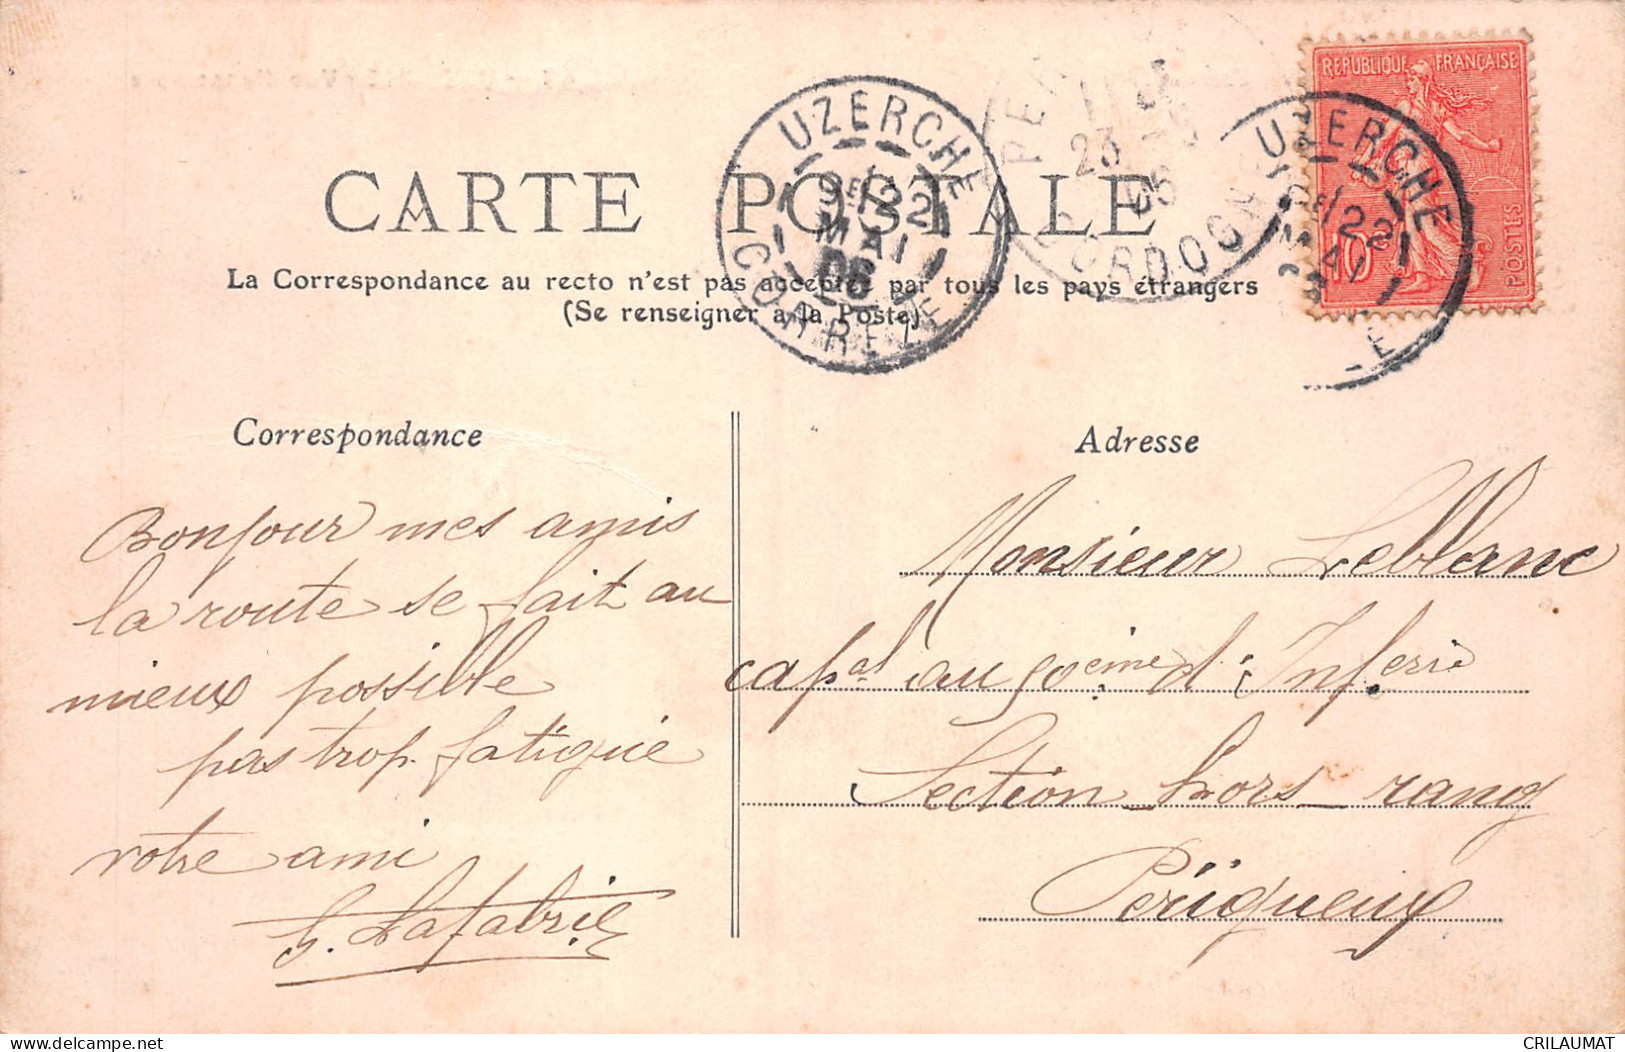 REPUBLIQUE FRANÇAISE
10
POSTES
UZERCHE
9E 22
MAI
06
CORREZE
23
06
DORDOGNE
UZERCHE
22
MAI
CARTE POSTALE
La Correspondance au recto n'est pas acceptée par tous les pays étrangers
(Se renseigner à la Poste)
Correspondance
Bonjour mes amis
la route se fait au
mieux possible
pas trop fatiguié
votre ami
G. Lafabrie
Adresse
Monsieur Leblanc
capal au 50eme d'Inferie
Section hors rang
Périgueux
delcampe.net
CRILAUMAT